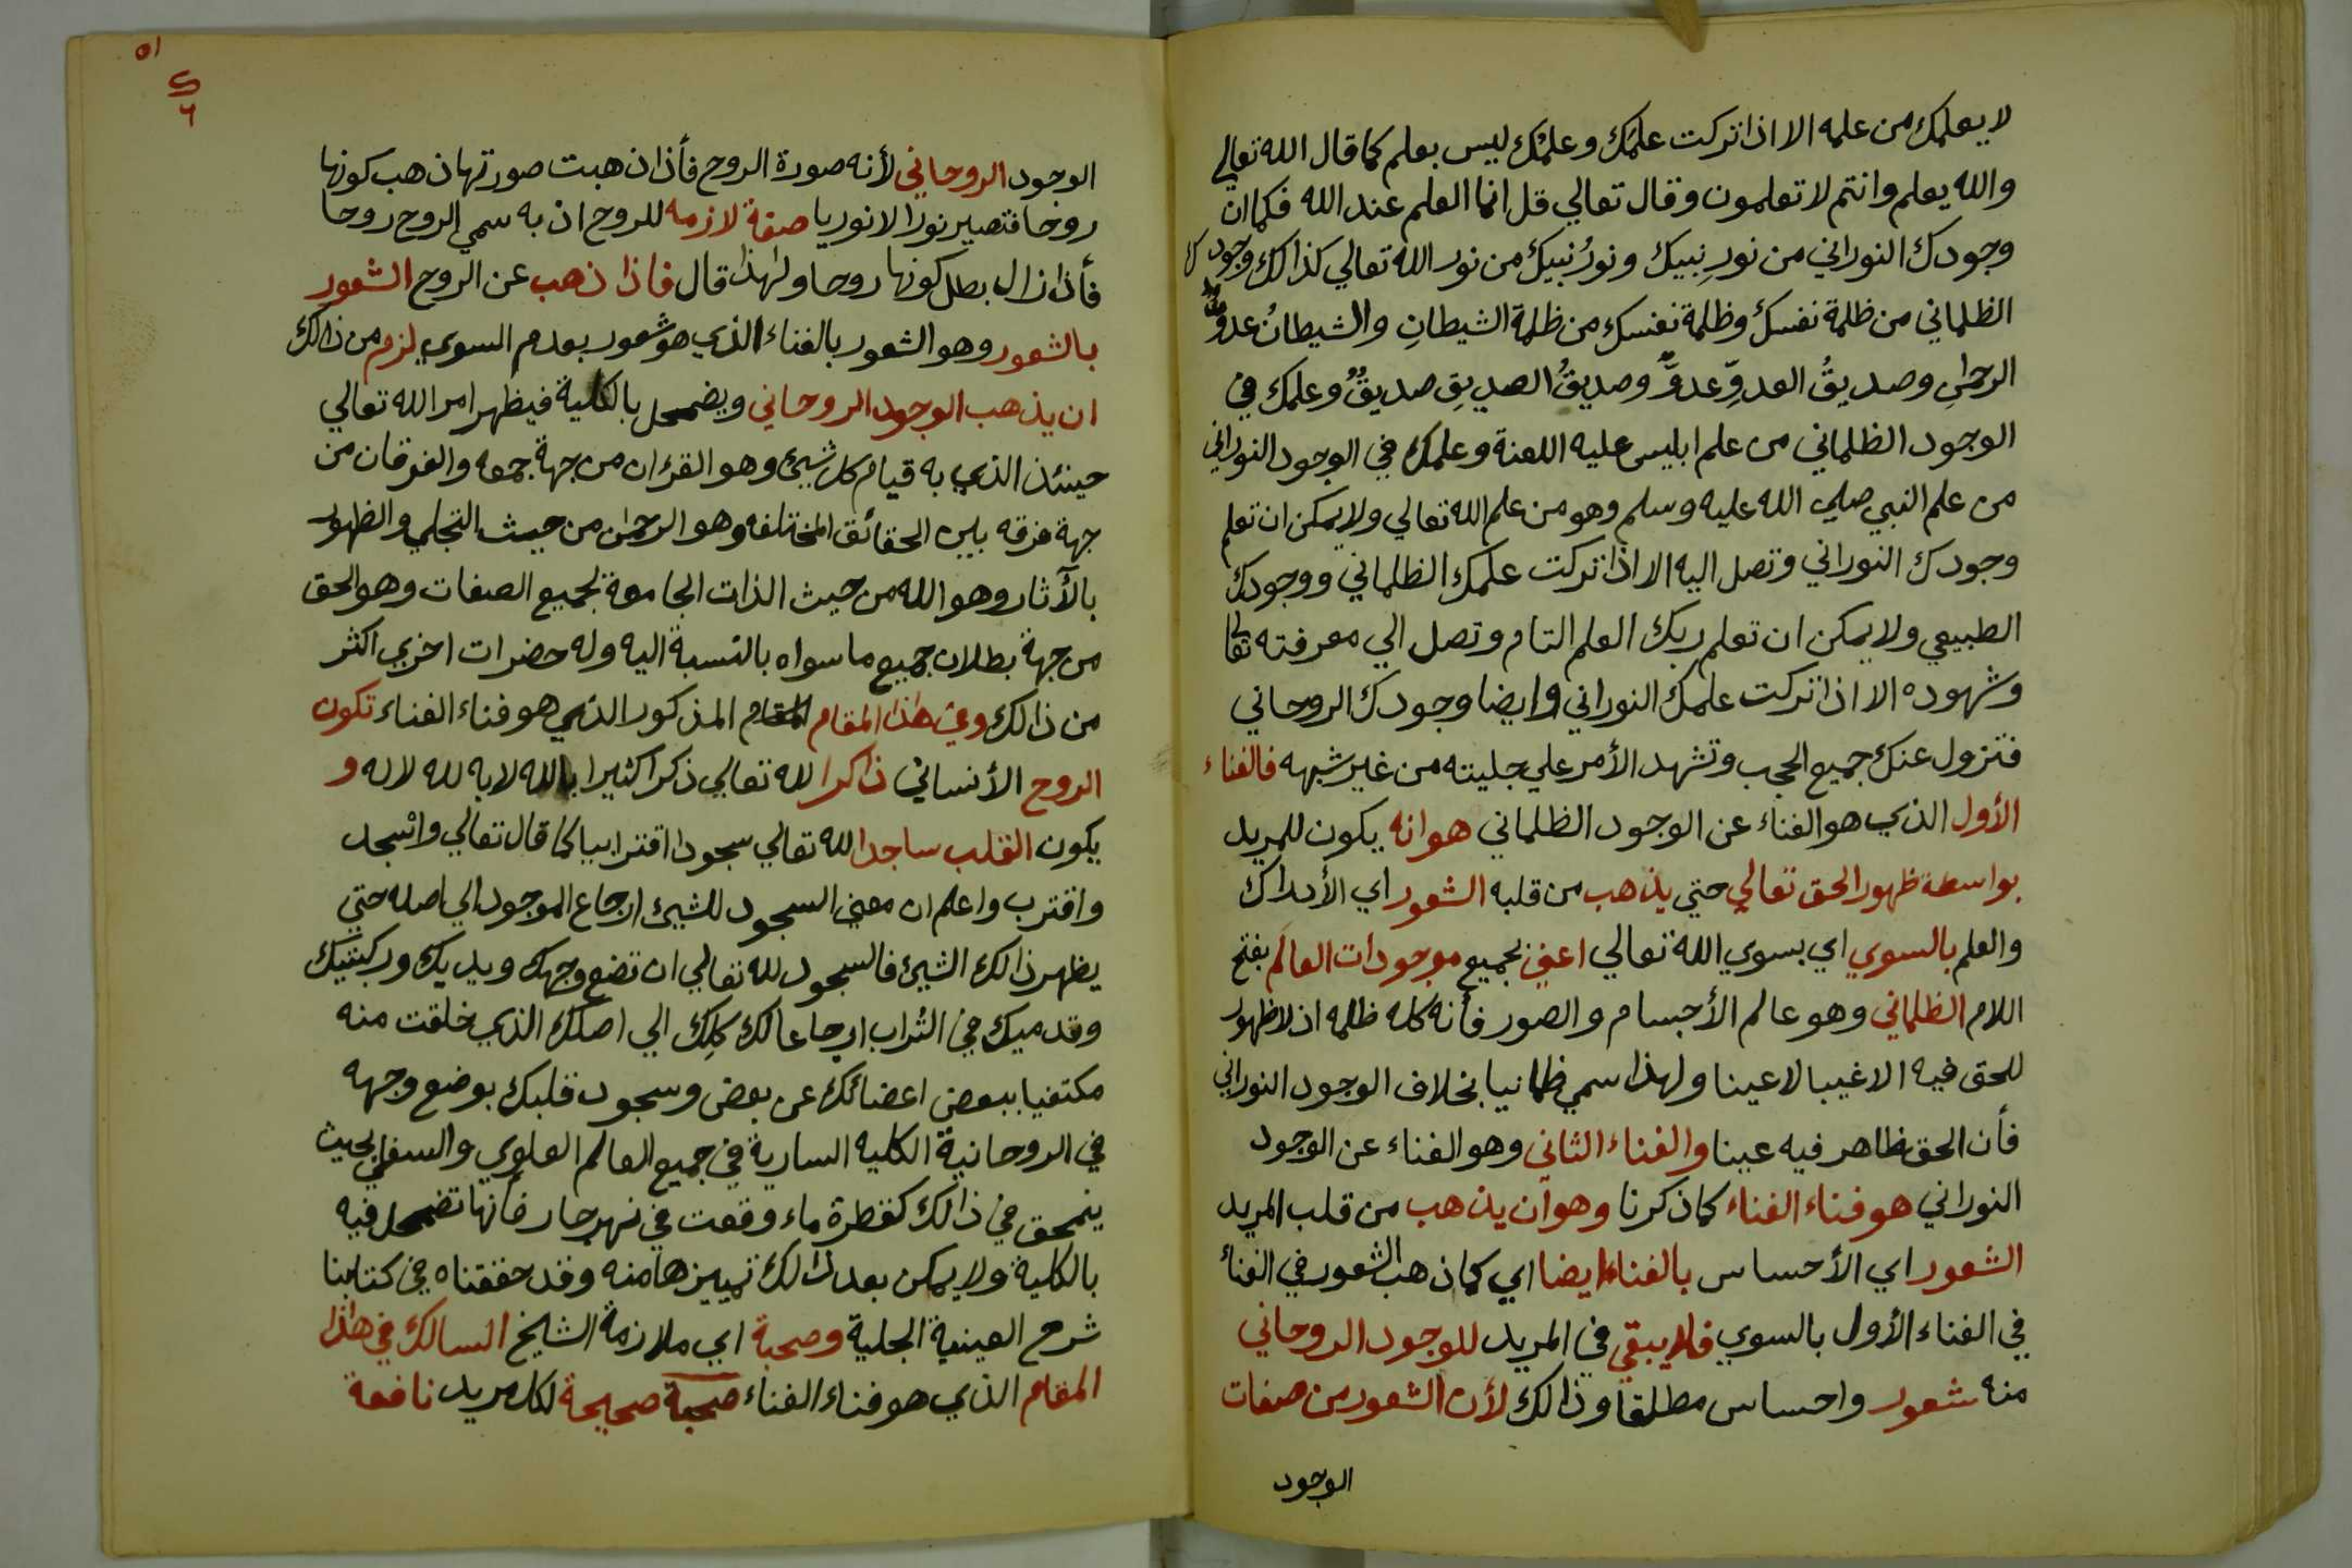 لا يعلمك من علمه الا اذا تركت علمك وعلمك ليس بعلم كما قال الله تعالي
والله يعلم وانتم لا تعلمون وقال تعالي قل انما العلم عند الله فكما ان
وجودك النوراني من نورِ نبيك ونورُ نبيك من نور الله تعالي كذالك وجودك
الظلماني من ظلمة نفسك وظلمة نفسك من ظلمة الشيطانِ والشيطانُ عدوُّ
الرحمٰنِ وصديقُ العدوِّ عدوٌّ وصديقُ الصديقِ صديقٌ وعلمك في
الوجود الظلماني من علم ابليس عليه اللعنة وعلمك في الوجود النوراني
من علم النبي صلي الله عليه وسلم وهو من علم الله تعالي ولا يمكن ان تعلم
وجودك النوراني وتصل اليه الا اذا تركت علمك الظلماني ووجودك
الطبيعي ولا يمكن ان تعلم ربك العلم التام وتصل الي معرفته تعالي
وشهوده الا اذا تركت علمك النوراني وايضا وجودك الروحاني
فتزول عنك جميع الحجب وتشهد الأمر علي جليته من غير شبهه فالفناء
الأول الذي هو الفناء عن الوجود الظلماني هو انه يكون للمريد
بواسطة ظهور الحق تعالي حتي يذهب من قلبه الشعور اي الأدراك
والعلم بالسوي اي بسوي الله تعالي اعني بجميع موجودات العالَم بفتح
اللام الظلماني وهو عالم الأجسام والصور فأنه كله ظلمه اذ لا ظهور
للحق فيه الا غيبا لا عينا ولهذا سمي ظلمانيا بخلاف الوجود النوراني
فأن الحق ظاهر فيه عينا والفناء الثاني وهو الفناء عن الوجود
النوراني هو فناء الفناء كما ذكرنا وهو أن يذهب من قلب المريد
الشعور اي الأحساس بالفناء ايضا اي كما ذهب الشعور في الفناء
في الفناء الأول بالسوي فلا يبقي في المريد للوجود الروحاني
منه شعور واحساس مطلقا وذالك لأن الشعور من صفات
الوجود
٥١
الوجود الروحاني لأنه صورة الروح فأذا ذهبت صورتها ذهب كونها
روحا فتصير نورا لا نوريا صفة لازمه للروح اذ به سمي الروح روحا
فأذا زال بطل كونها روحا ولهذا قال فاذا ذهب عن الروح الشعور
بالشعور وهو الشعور بالفناء الذي هو شعور بعدم السوي لزم من ذالك
ان يذهب الوجود الروحاني ويضمحل بالكلية فيظهر امر الله تعالي
حينئذ الذي به قيام كل شيئ وهو القرءان من جهة جمعه والفرقان من
جهة فرقه بين الحقائق المختلفه وهو الرحمن من حيث التجلي والظهور
بالأثار وهو الله من حيث الذات الجامعة لجميع الصفات وهو الحق
من جهة بطلان جميع ما سواه بالنسبة اليه وله حضرات اخري اكثر
من ذالك وفي هذا المقام المقام المذكور الذي هو فناء الفناء تكون
الروح الأنساني ذاكرا لله تعالي ذكرا كثيرا بالله لا به لله لا له و
يكون القلب ساجدا لله تعالي سجودا اقترابيا كما قال تعالي واسجد
واقترب واعلم ان معني السجود للشيئ ارجاع الموجود الي اصله حتي
يظهر ذالك الشيئ فالسجود لله تعالي ان تضع وجهك ويديك وركبتيك
وقدميك في التراب ارجاعا لك كلِك الي اصلك الذي خلقت منه
مكتفيا ببعض اعضائك عن بعض وسجود قلبك بوضع وجهه
في الروحانية الكليه السارية في جميع العالم العلوي والسفلي بحيث
ينمحق في ذالك كقطرة ماء وقعت في نهر جار فأنها تضمحل فيه
بالكلية ولا يمكن بعد ذالك تمييزها منه وقد حققناه في كتابنا
شرح العينية الجلية وصحبة اي ملازمة الشيخ السالك في هذا
المقام الذي هو فناء الفناء صحبة صحيحة لكل مريد نافعة